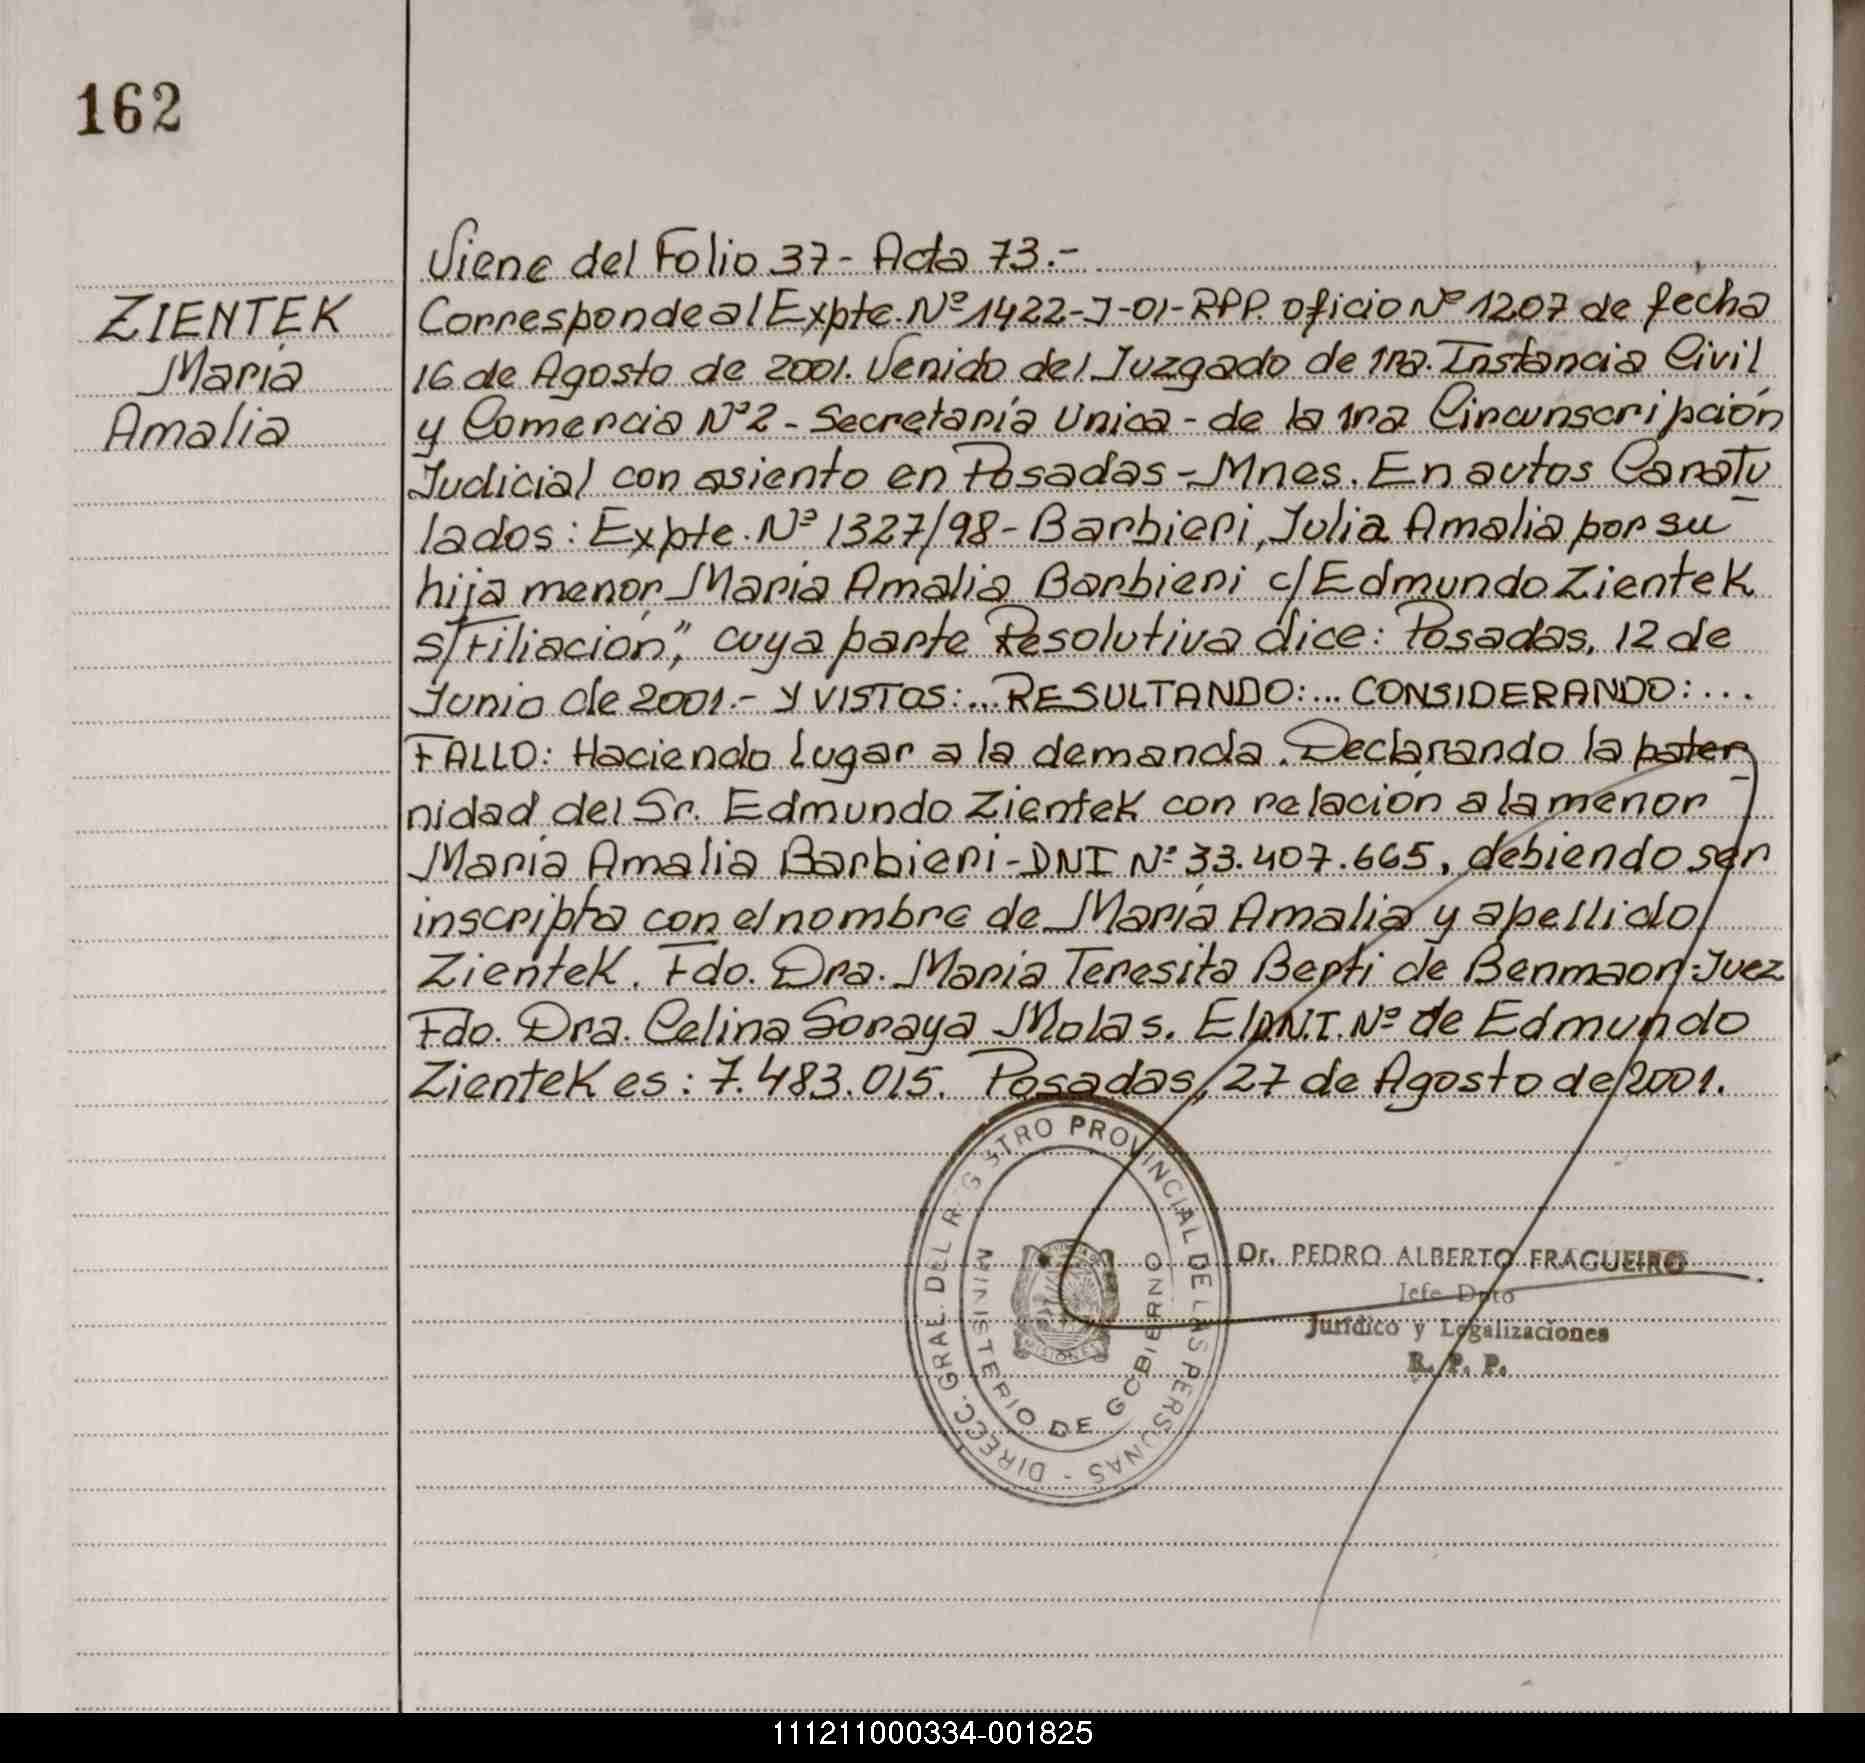 162
ZIENTEK
María
Amalia
Viene del Folio 37 - Acta 73.-
Corresponde al Expte. Nº 1422-J-01-RPP. oficio Nº 1207 de fecha
16 de Agosto de 2001. Venido del Juzgado de 1ra. Instancia Civil
y Comercio Nº 2 - Secretaría Unica - de la 1ra Circunscripción
Judicial con asiento en Posadas - Mnes. En autos Caratu
lados: Expte. Nº 1327/98 - Barbieri, Julia Amalia por su
hija menor María Amalia Barbieri c/ Edmundo Zientek
s/Filiación", cuya parte Resolutiva dice: Posadas, 12 de
Junio de 2001.- Y VISTOS:... RESULTANDO:... CONSIDERANDO:...
FALLO: Haciendo lugar a la demanda. Declarando la pater
nidad del Sr. Edmundo Zientek con relación a la menor
María Amalia Barbieri - DNI Nº 33.407.665, debiendo ser
inscripta con el nombre de María Amalia y apellido
Zientek. Fdo. Dra. María Teresita Berti de Benmaor - Juez
Fdo. Dra. Celina Soraya Molas. El D.N.I. Nº de Edmundo
Zientek es: 7.483.015. Posadas, 27 de Agosto de 2001.
DIRECC. GRAL. DEL REGISTRO PROVINCIAL DE LAS PERSONAS -
MINISTERIO DE GOBIERNO
MISIONES
Dr. PEDRO ALBERTO FRAGUEIRO
Jefe Dpto
Jurídico y Legalizaciones
R. P. P.
111211000334-001825